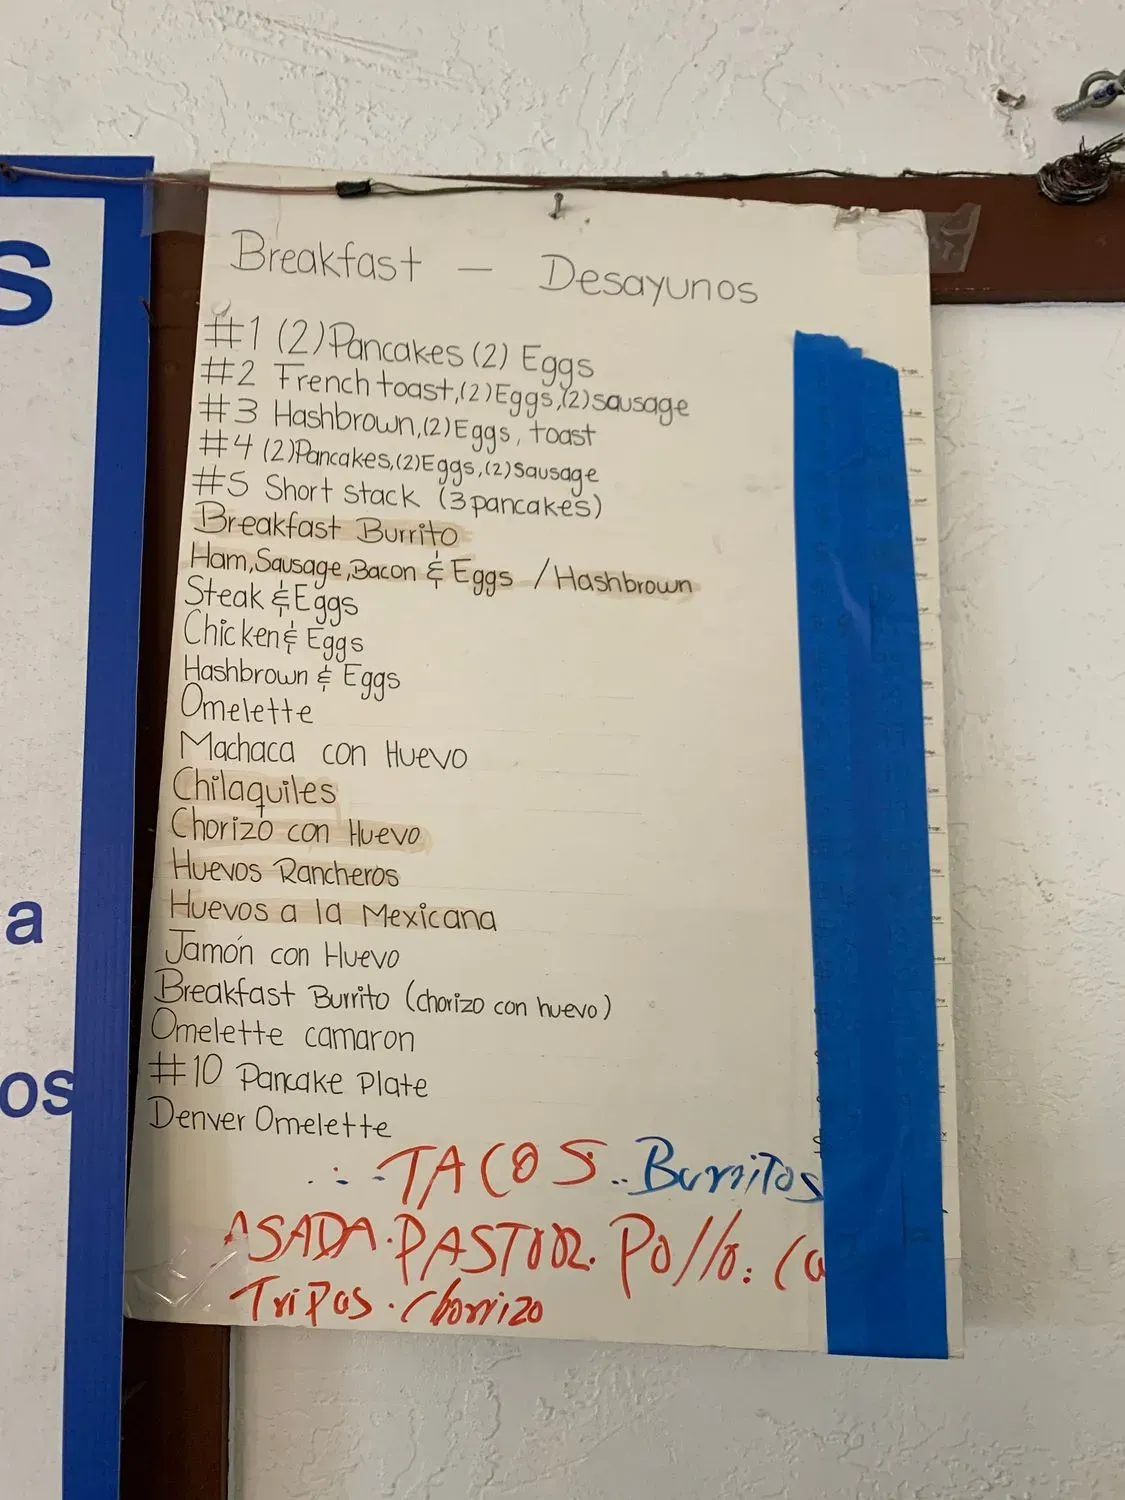 S
a
os
Breakfast — Desayunos
#1 (2) Pancakes (2) Eggs
#2 French toast, (2) Eggs, (2) sausage
#3 Hashbrown, (2) Eggs, toast
#4 (2) Pancakes, (2) Eggs, (2) Sausage
#5 Short stack (3 pancakes)
Breakfast Burrito
Ham, Sausage, Bacon & Eggs / Hashbrown
Steak & Eggs
Chicken & Eggs
Hashbrown & Eggs
Omelette
Machaca con Huevo
Chilaquiles
Chorizo con Huevo
Huevos Rancheros
Huevos a la Mexicana
Jamón con Huevo
Breakfast Burrito (chorizo con huevo)
Omelette camaron
#10 Pancake Plate
Denver Omelette
TACOS.. Burritos
ASADA. PASTOR. Pollo.
Tripas. Chorrizo